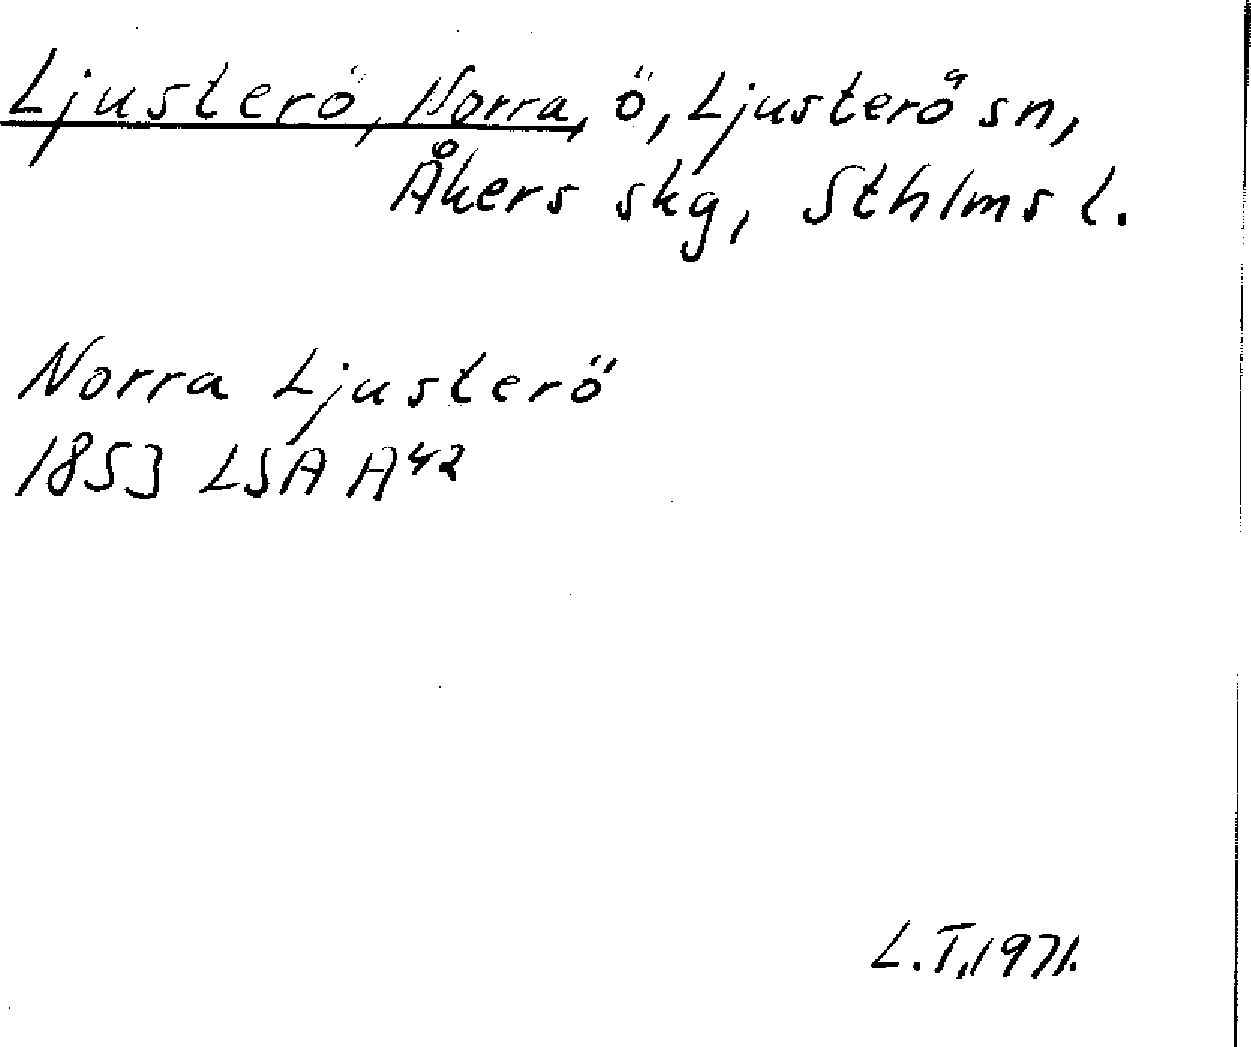 Ljusterö, Norra, ö, Ljusterö sn,
Åkers skg, Sthlms l.
Norra Ljusterö
1853 LSA A42
L.T., 1971.